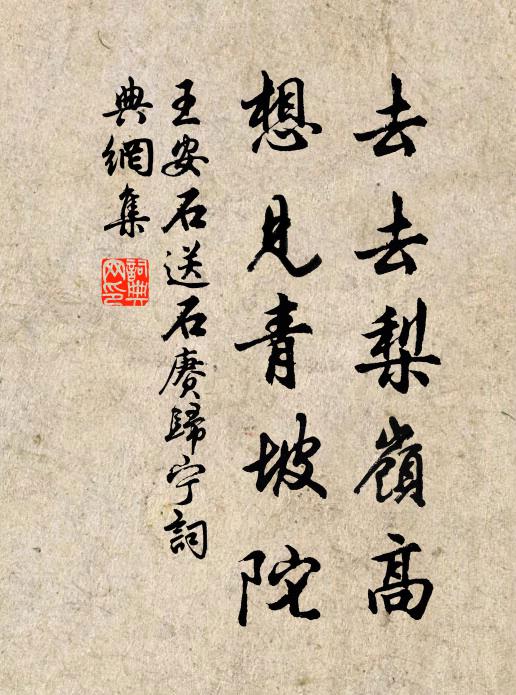 去去梨嶺高
想見青坡陀
王安石送石賡歸宁詞
典網集
詞典
网印